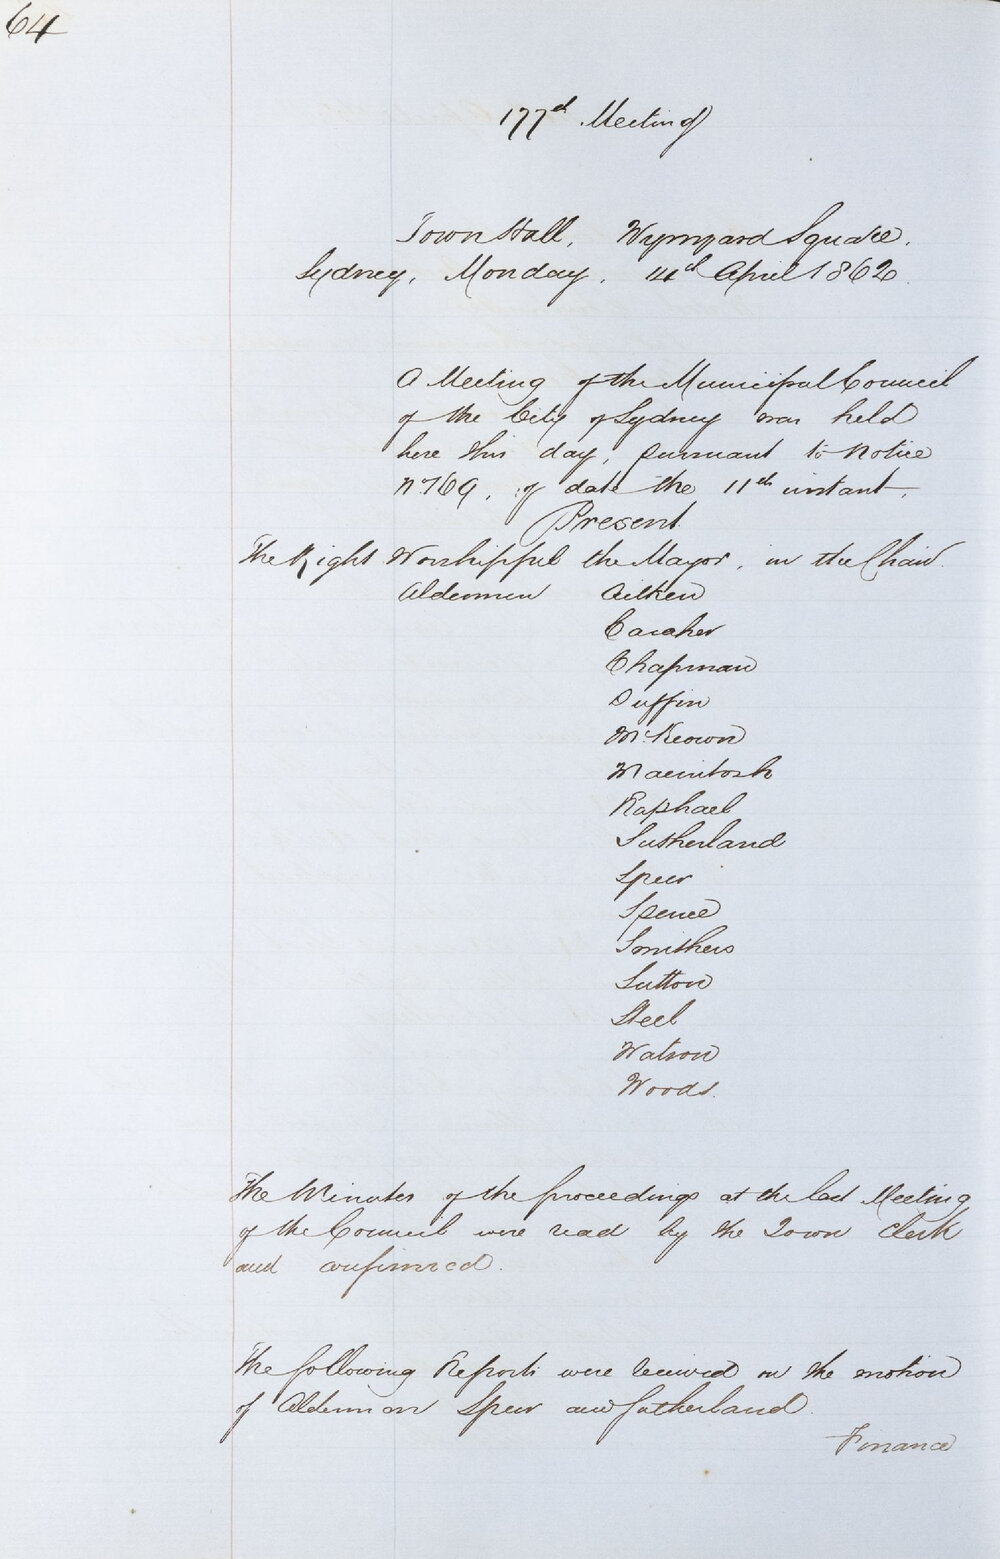 64
177th Meeting
Town Hall, Wynyard Square.
Sydney, Monday, 14th April 1862.
A Meeting of the Municipal Council
of the City of Sydney was held
here this day, pursuant to notice
No 769, of date the 11th instant.
Present
The Right Worshipful the Mayor, in the Chair.
Aldermen Aitken
Caraher
Chapman
Duffin
McKeown
Macintosh
Raphael
Sutherland
Speer
Spence
Smithers
Sutton
Steel
Watson
Woods.
The Minutes of the proceedings at the last Meeting
of the Council were read by the Town Clerk
and confirmed.
The following Reports were received on the motion
of Alderman Speer and Sutherland.
Finance